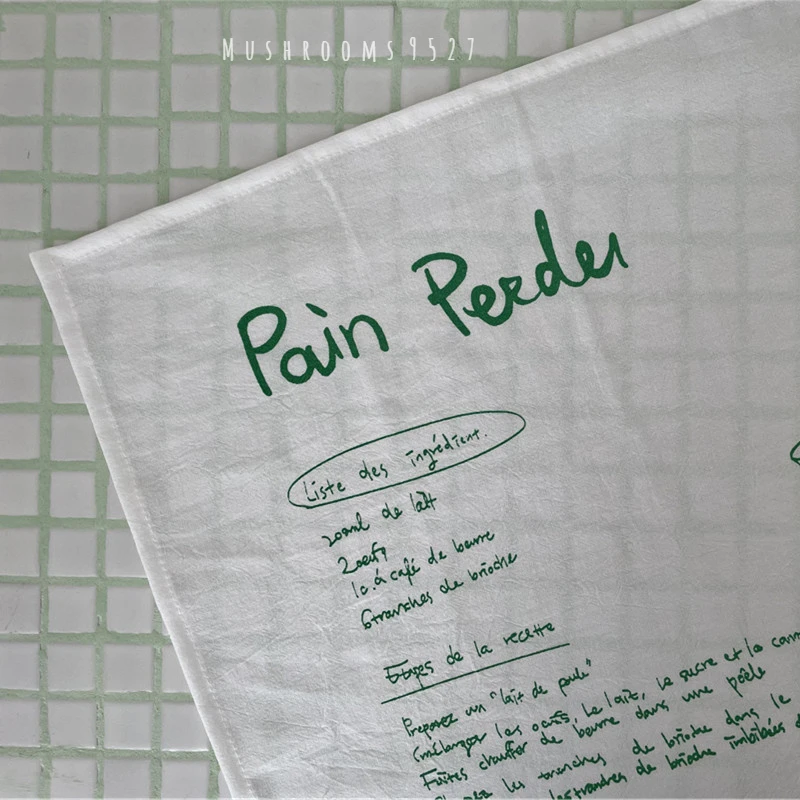 Mushrooms9527
Pain Perdu
Liste des ingrédient.
200ml de lait
2oeufs
1c.à café de beurre
6tranches de brioche
Etapes de la recette
Preparez un "lait de poule"
(mélanger les oeufs, le lait, le sucre et la
Faites chauffer de beurre dans une poêle
les tranches de brioche dans le
les tranches de brioche imbibées